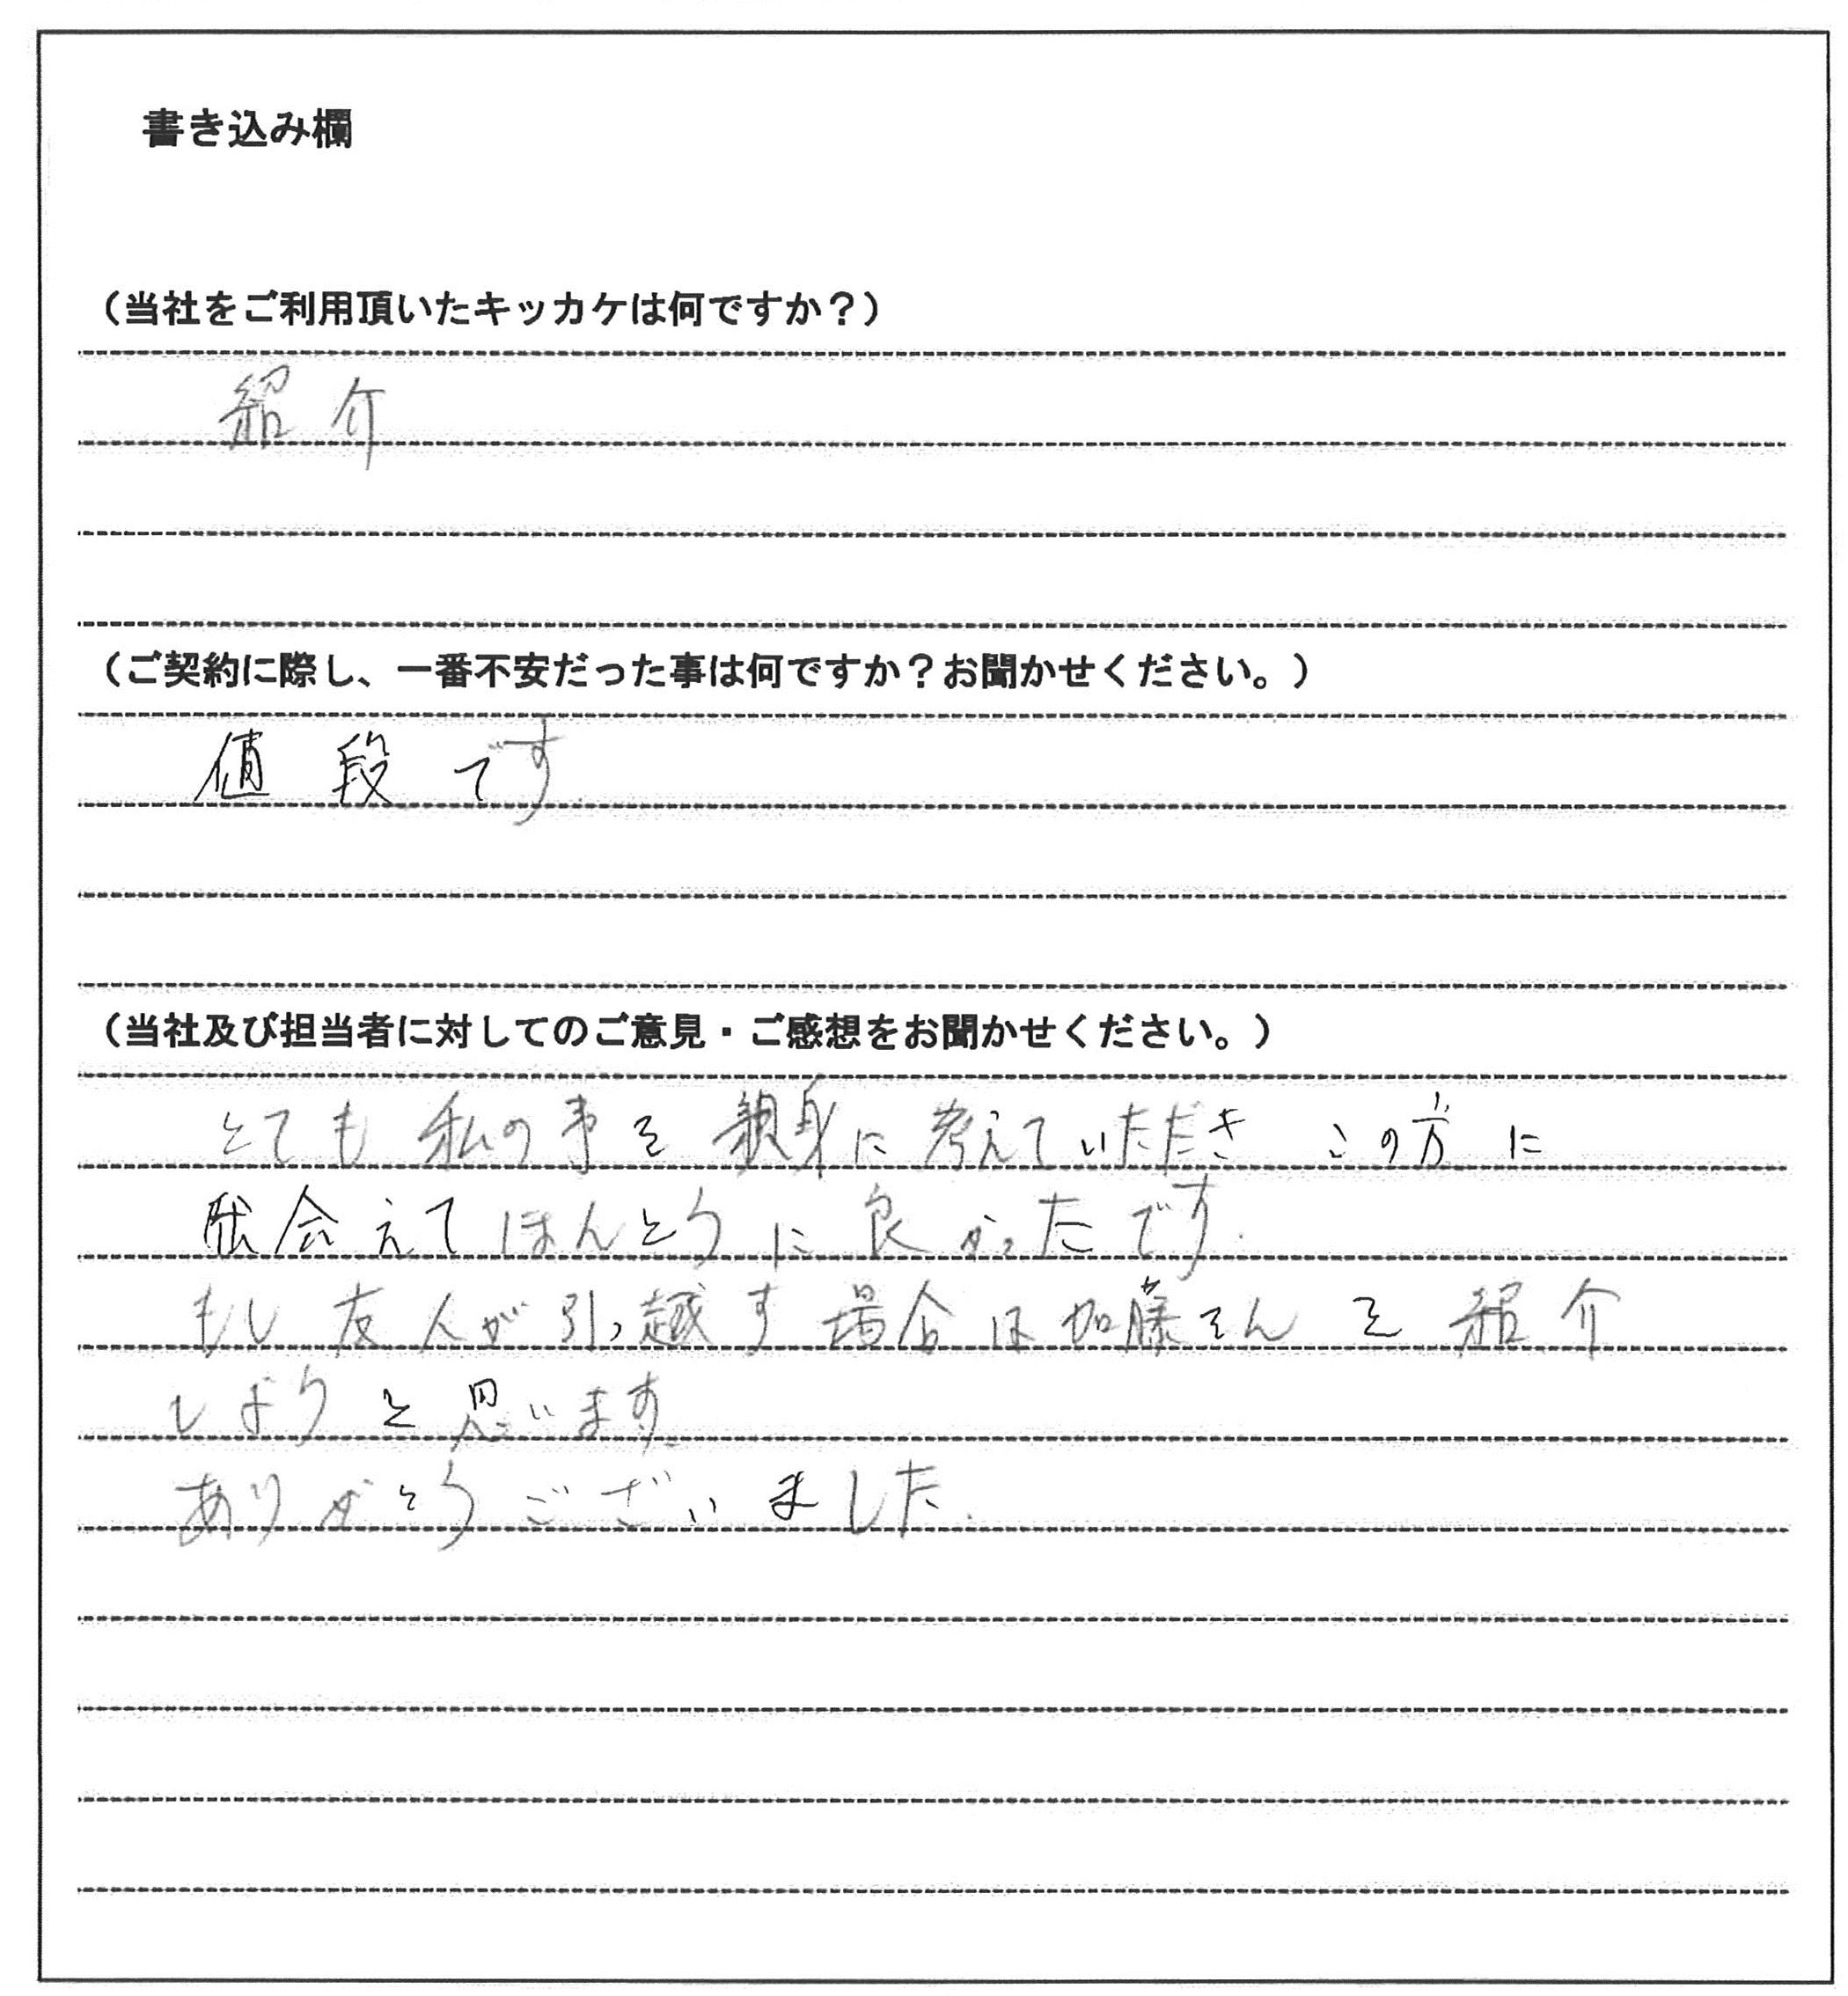 書き込み欄
（当社をご利用頂いたキッカケは何ですか？）
紹介
（ご契約に際し、一番不安だった事は何ですか？お聞かせください。）
値段です
（当社及び担当者に対してのご意見・ご感想をお聞かせください。）
とても私の事を親身に考えていただき この方に
出会えてほんとうに良かったです.
もし友人が引っ越す場合は加藤さんを紹介
しようと思います.
ありがとうございました.